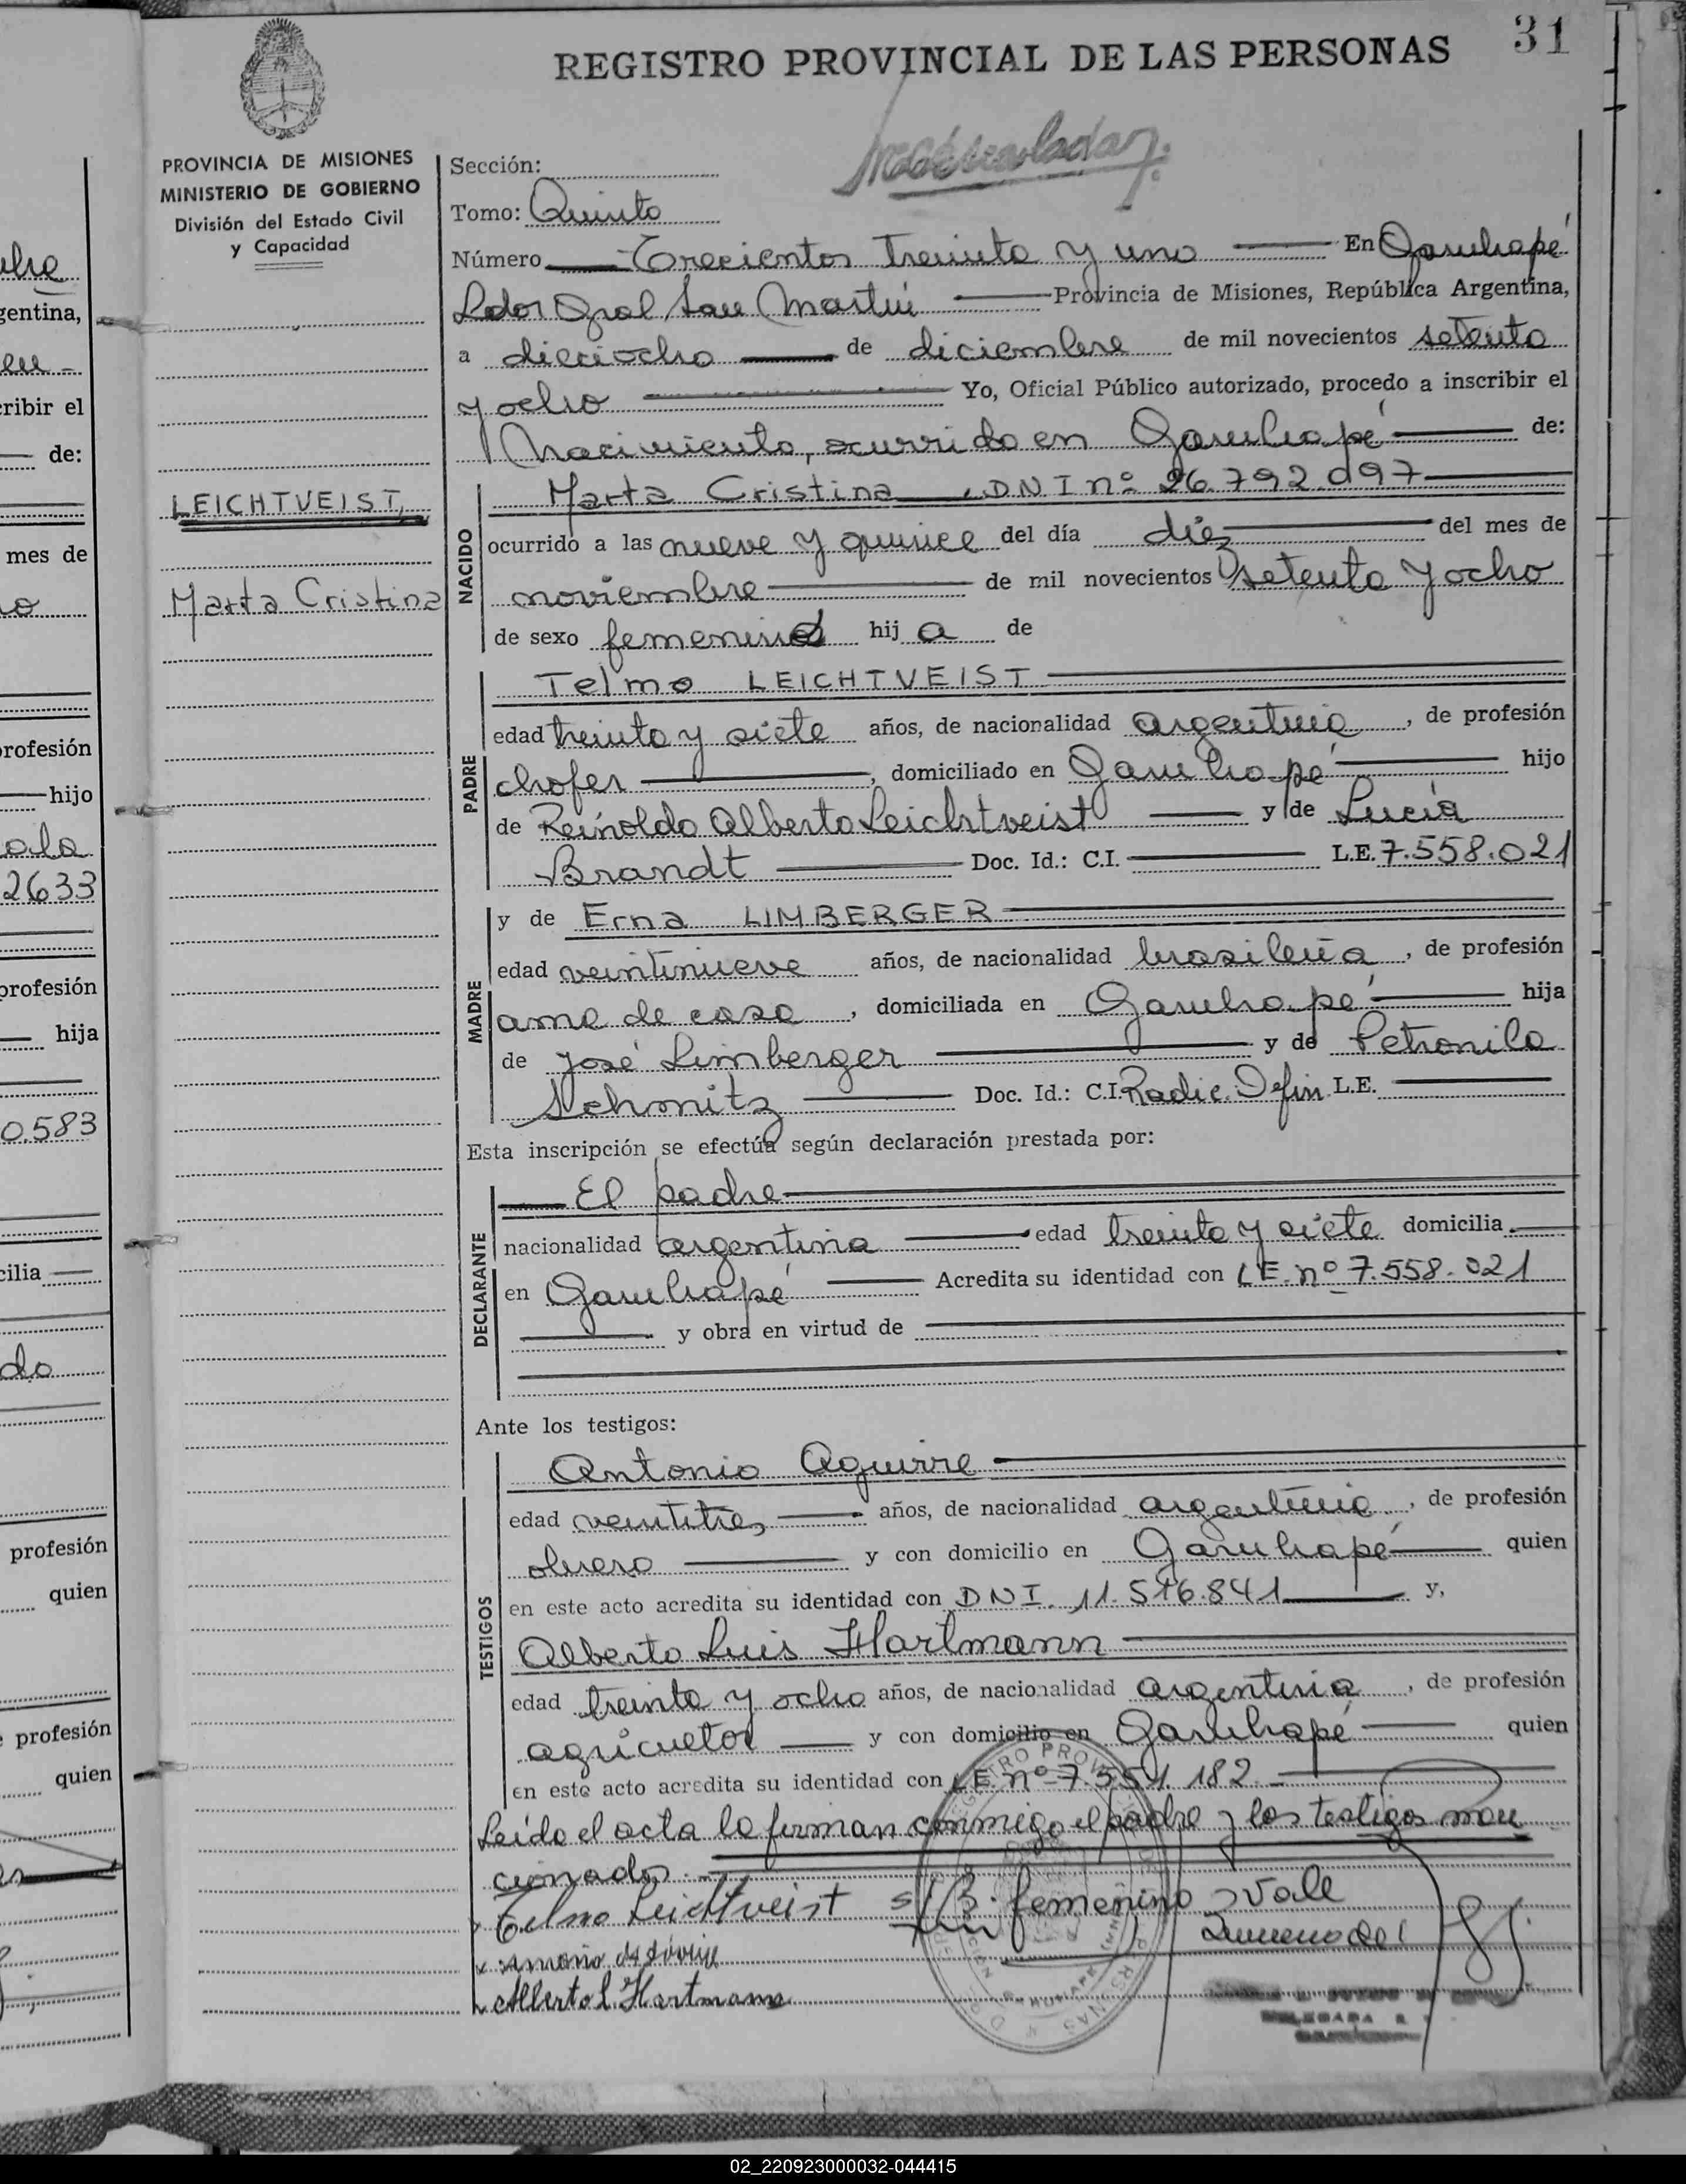 31
REGISTRO PROVINCIAL DE LAS PERSONAS
PROVINCIA DE MISIONES
MINISTERIO DE GOBIERNO
División del Estado Civil
y Capacidad
LEICHTVEIST,
Marta Cristina
Sección:
Tomo: Quinto
Número Trecientos Treinta y uno En Garuhapé
Ldor Gral San Martín Provincia de Misiones, República Argentina,
a dieciocho de diciembre de mil novecientos setenta
y ocho Yo, Oficial Público autorizado, procedo a inscribir el
Nacimiento, ocurrido en Garuhapé de:
NACIDO
Marta Cristina, DNI nº 26.792.097
ocurrido a las nueve y quince del día diez del mes de
noviembre de mil novecientos setenta y ocho
de sexo femenino hij a de
PADRE
Telmo LEICHTVEIST
edad treinta y siete años, de nacionalidad argentina, de profesión
chofer, domiciliado en Garuhapé hijo
de Reinoldo Alberto Leichtveist y de Lucía
Brandt Doc. Id.: C.I. L.E. 7.558.021
MADRE
y de Erna LIMBERGER
edad veintinueve años, de nacionalidad brasileña, de profesión
ama de casa, domiciliada en Garuhapé hija
de José Limberger y de Petronila
Schmitz Doc. Id.: C.I. Radic. Defin. L.E.
Esta inscripción se efectúa según declaración prestada por:
DECLARANTE
El padre
nacionalidad argentina edad treinta y siete domicilia
en Garuhapé Acredita su identidad con L.E. nº 7.558.021
y obra en virtud de
Ante los testigos:
TESTIGOS
Antonio Aguirre
edad veintitres años, de nacionalidad argentina, de profesión
obrero y con domicilio en Garuhapé quien
en este acto acredita su identidad con DNI. 11.516.841 y,
Alberto Luis Hartmann
edad treinta y ocho años, de nacionalidad argentina, de profesión
agricultor y con domicilio en Garuhapé quien
en este acto acredita su identidad con LE. nº 7.551.182
Leído el acta la firman conmigo el padre y los testigos men
cionados.
Telmo Leichtveist s/B. femenino Vale
Alberto L. Hartmann
02_220923000032-044415